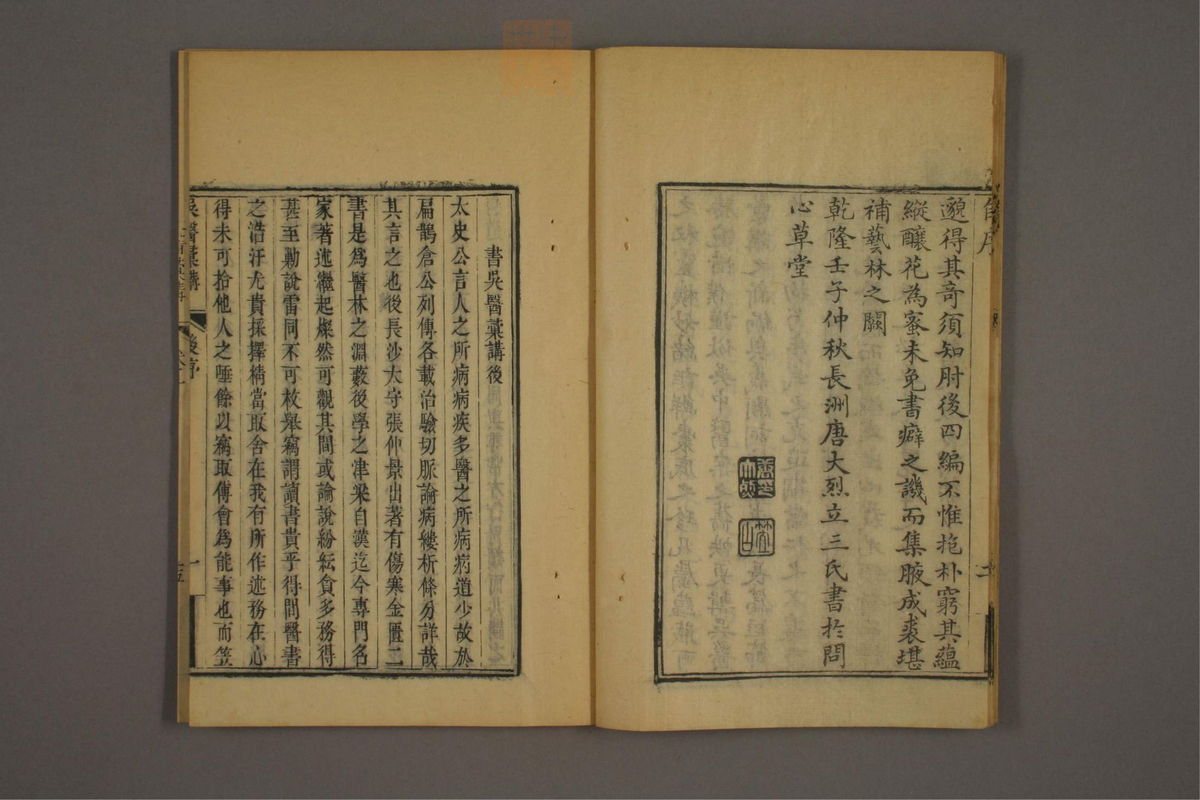 邈得其奇須知肘後四編不惟抱朴窮其蘊
縱釀花為蜜未免書癖之譏而集腋成裘堪
補藝林之闕
乾隆壬子仲秋長洲唐大烈立三氏書於問
心草堂
書吳醫彙講後
太史公言人之所病病疾多醫之所病病道少故於
扁鵲倉公列傳各載治驗切脈論病縷析條分詳哉
其言之也後長沙太守張仲景出著有傷寒金匱二
書是為醫林之淵藪後學之津梁自漢迄今專門名
家著述繼起燦然可觀其間或論說紛紜貪多務得
甚至勦說雷同不可枚舉竊謂讀書貴乎得間醫書
之浩汗尤貴採擇精當取舍在我有所作述務在心
得未可拾他人之唾餘以竊取傅會為能事也而笠
吳醫彙講
後序
一